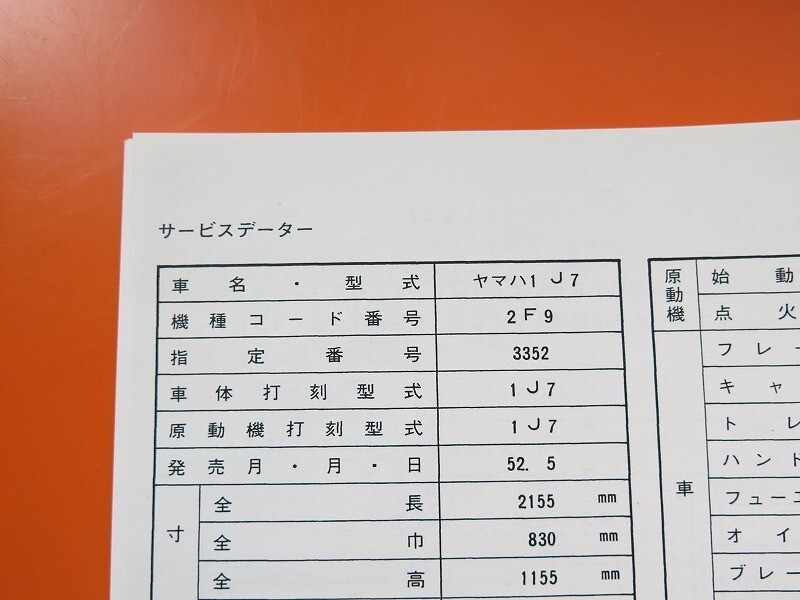 サービスデーター
車名・型式 ヤマハ1J7
機種コード番号 2F9
指定番号 3352
車体打刻型式 1J7
原動機打刻型式 1J7
発売月・月・日 52. 5
寸
全長 2155 mm
全巾 830 mm
全高 1155 mm
原動機
始動
点火
車
フレー
キャ
トレ
ハンド
フューエ
オイ
ブレー